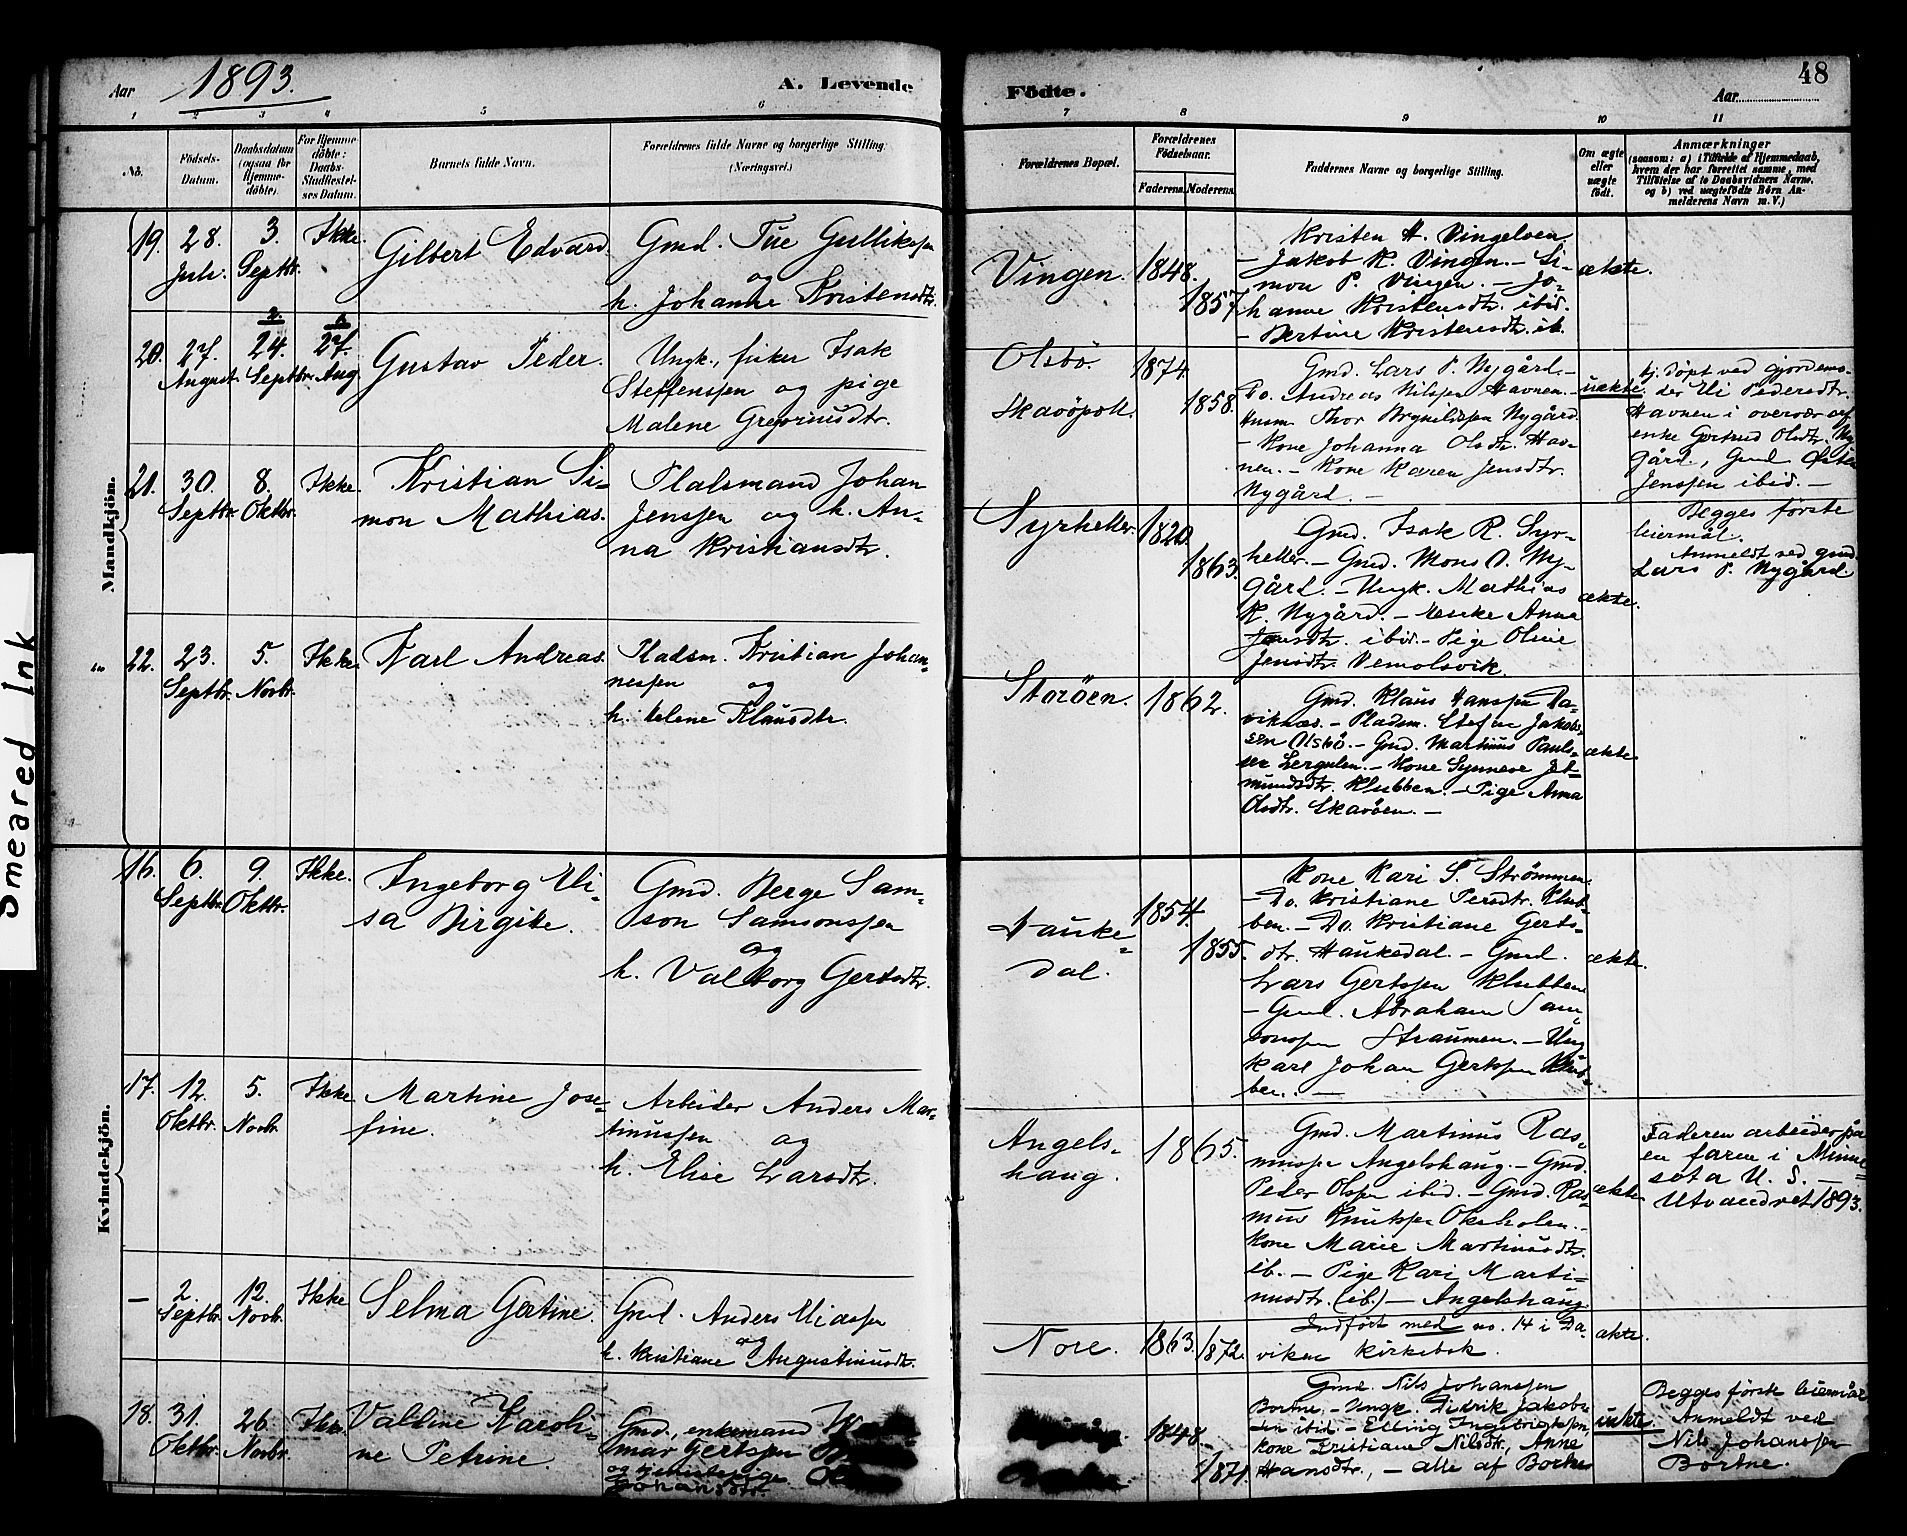 Aar 1893.
A. Levende
Födte.
48
Aar
1 2 3 4 5 6 7 8 9 10 11
No.
Födsels-
Datum.
Daabsdatum
(ogsaa for
Hjemme-
döbte).
For Hjemme-
döbte:
Daabs-
Stadfæstel-
ses Datum.
Barnets fulde Navn.
Forældrenes fulde Navne og borgerlige Stilling
(Næringsvei.)
Forældrenes Bopæl.
Forældrenes
Födselsaar.
Faderens. Moderens.
Faddernes Navne og borgerlige Stilling.
Om ægte
eller
uægte
födt.
Anmærkninger
(saasom: a) i Tilfælde af Hjemmedaab,
hvem der har forrettet samme, med
Tilföielse af to Daabsvidners Navne,
og b) ved uægtefödte Börn An-
melderens Navn m. V.)
Mandkjön.
19. 28. Juli. 3. Septbr. Ikke.
Gilbert Edvard
Gmd. Tue Gulliksen
og
h. Johanne Kristensdtr.
Vingen. 1848. 1857.
Kristen A. Vingelven
- Jakob R. Vingen. - Si-
mon P. Vingen. - Jo-
hanne Kristensdtr. ibid.
- Bertine Kristensdtr. ib.
ækte.
20. 27. August. 24. Septbr. 27. Aug.
Gustav Peder.
Ungk., fisker Isak
Steffenssen og pige
Malene Gregoriusdtr.
Olsbö.
Skavöpoll.
1874. 1858.
Gmd. Lars P. Nygård. -
Do. Andreas Nilssen Havnen. -
Husm. Thor Brynildssen Nygård.
- Kone Johanna Olsdtr. Hav-
nen. - Kone Karen Jensdtr.
Nygård. -
uækte.
hj. döpt ved gjordemo-
der Eli Pedersdtr.
Havnen i overvær af
enke Gertrud Olsdtr. Ny-
gård., Gmd.
Jenssen ibid. -
Begges förste
leiermål.
Anmeldt ved gmd.
Lars P. Nygård.
21. 30. Septbr. 8. Oktbr. Ikke.
Kristian Si-
mon Mathias.
Pladsmand Johan
Jenssen og h. An-
na Kristiansdtr.
Syrheller. 1820. 1863.
Gmd. Isak R. Syr-
heller. - Gmd. Mons O. Ny-
gård. - Ungk. Mathias
R. Nygård. - Enke Anne
Jensdtr. ibid. - Pige Oline
Jensdtr. Vemolsvik.
ækte.
22. 23. Septbr. 5. Novbr. Ikke.
Karl Andreas.
Pladsm. Kristian Johan-
nessen og
h. Helene Klausdtr.
Storöen. 1862.
Gmd. Klaus Hanssen Da-
viknæs. - Pladsm. Stefan Jakobs-
sen Olsbö. - Gmd. Martinus Pauls-
sen Lergulen. - Kone Synneve Jet-
mundsdtr. Klubben. - Pige Anna
Olsdtr. Skavöen. -
ækte.
Kvindekjön.
16. 6. Septbr. 9. Oktbr. Ikke.
Ingeborg Eli-
sa Birgite.
Gmd. Berge Sam-
son Samsonssen
og
h. Valborg Gertsdtr.
Hauke-
dal.
1854. 1855.
Kone Kari S. Strömmen.
- Do. Kristiane Persdtr. Klub-
ben. - Do. Kristiane Gerts-
dtr. Haukedal. - Gmd.
Lars Gertssen Klubben
- Gmd. Abraham Sam-
sonssen Straumen. - Ung
karl Johan Gertssen Klub-
ben. -
ækte.
17. 12. Oktbr. 5. Novbr. Ikke
Martine Jose-
fine.
Arbeider Anders Mar-
tinussen og
h. Elise Larsdtr.
Angels-
haug.
1865.
Gmd. Martinus Ras-
mussen Angelshaug. - Gmd.
Peder Olssen ibid. - Gmd. Ras-
mus Knutssen Okeholen. -
Kone Marie Martinusdtr.
ib. - Pige Kari Marti-
nusdtr. (ib.) - Angelshaug.
ækte
Faderen arbeider på
en farm i Minne-
sota U. S. -
Utvandret 1893.
- 2. Septbr. 12. Novbr. Ikke
Selma Gertine.
Gmd. Anders Eliassen
og
h. Kristiane Augustinusdtr.
Nore. 1863. 1872.
Indfört med no. 14 i Da-
viken kirkebok.
ækte.
18. 31. Oktbr. 26. Novbr. Ikke.
Valline Karoli-
ne Petrine.
Gmd., enkemand
mar Gertssen
og tjenestepige
Johansdtr.
1848. 1871.
Gmd. Nils Johanssen
Bortne. - Ungk. Didrik Jakobs-
sen ibid. - Elling Ingebrigtssen,
Kone Kristiane Nilsdtr., Anne
Hansdtr., - alle af Bortne
uækte.
Begges förste leiermål
Anmeldt ved
Nils Johanssen
Bortne.
Smeared Ink